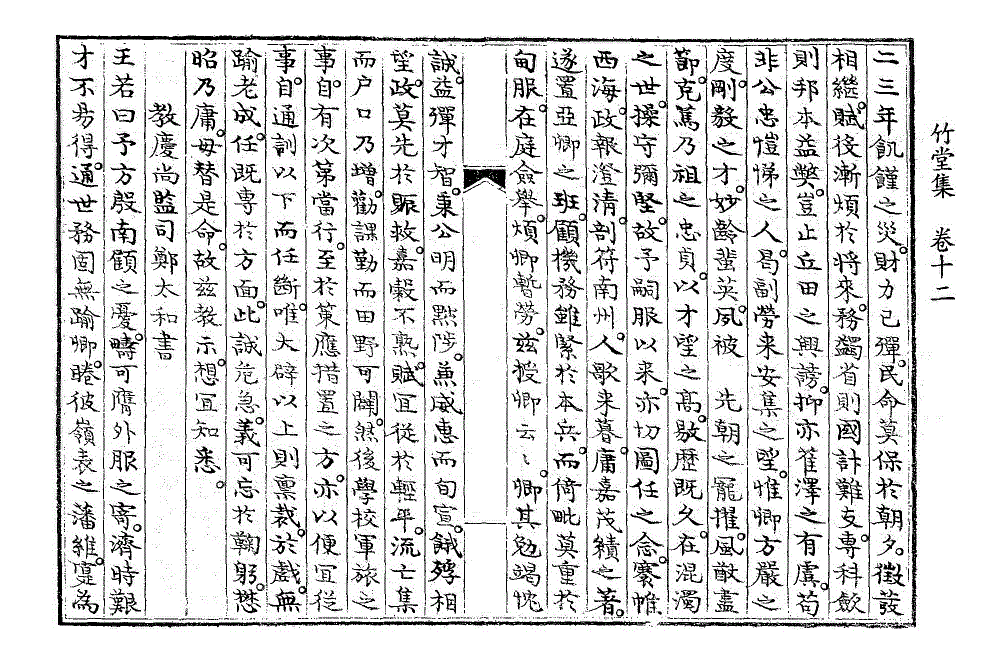 竹堂集　卷十二
二三年飢饉之災。財力已殫。民命莫保於朝夕。徵發
相繼。賦役漸煩於將來。務蠲省則國計難支。專科斂
則邦本益弊。豈止丘田之興謗。抑亦萑澤之有虞。苟
非公忠愷悌之人。曷副勞来安集之望。惟卿方嚴之
度。剛毅之才。妙齡蜚英。夙被　先朝之寵擢。風猷盡
節。克篤乃祖之忠貞。以才望之高。敭歷既久。在混濁
之世。操守彌堅。故予嗣服以来。亦切圖任之念。褰帷
西海。政報澄清。剖符南州。人歌来暮。庸嘉茂績之著。
遂置亞卿之班。顧機務雖緊於本兵。而倚毗莫重於
旬服。在庭僉舉。煩卿暫勞。玆授卿云〻。卿其勉竭忱
誠。益彈才智。秉公明而黜陟。兼威惠而旬宣。餓殍相
望。政莫先於賑救。嘉穀不熟。賦宜從於輕平。流亡集
而户口乃增。勸課勤而田野可闢。然後學校軍旅之
事。自有次第當行。至於策應措置之方。亦以便宜從
事。自通訓以下而任斷。唯大辟以上則禀裁。於戲。無
踰老成。任既專於方面。此誠危急。義可忘於鞠躬。懋
昭乃庸。毋替是命。故玆教示。想宜知悉。
教慶尚監司鄭太和書
王若曰。予方殷南顧之憂。疇可膺外服之寄。濟時艱
才不易得。通世務固無踰卿。睠彼嶺表之藩維。寔為